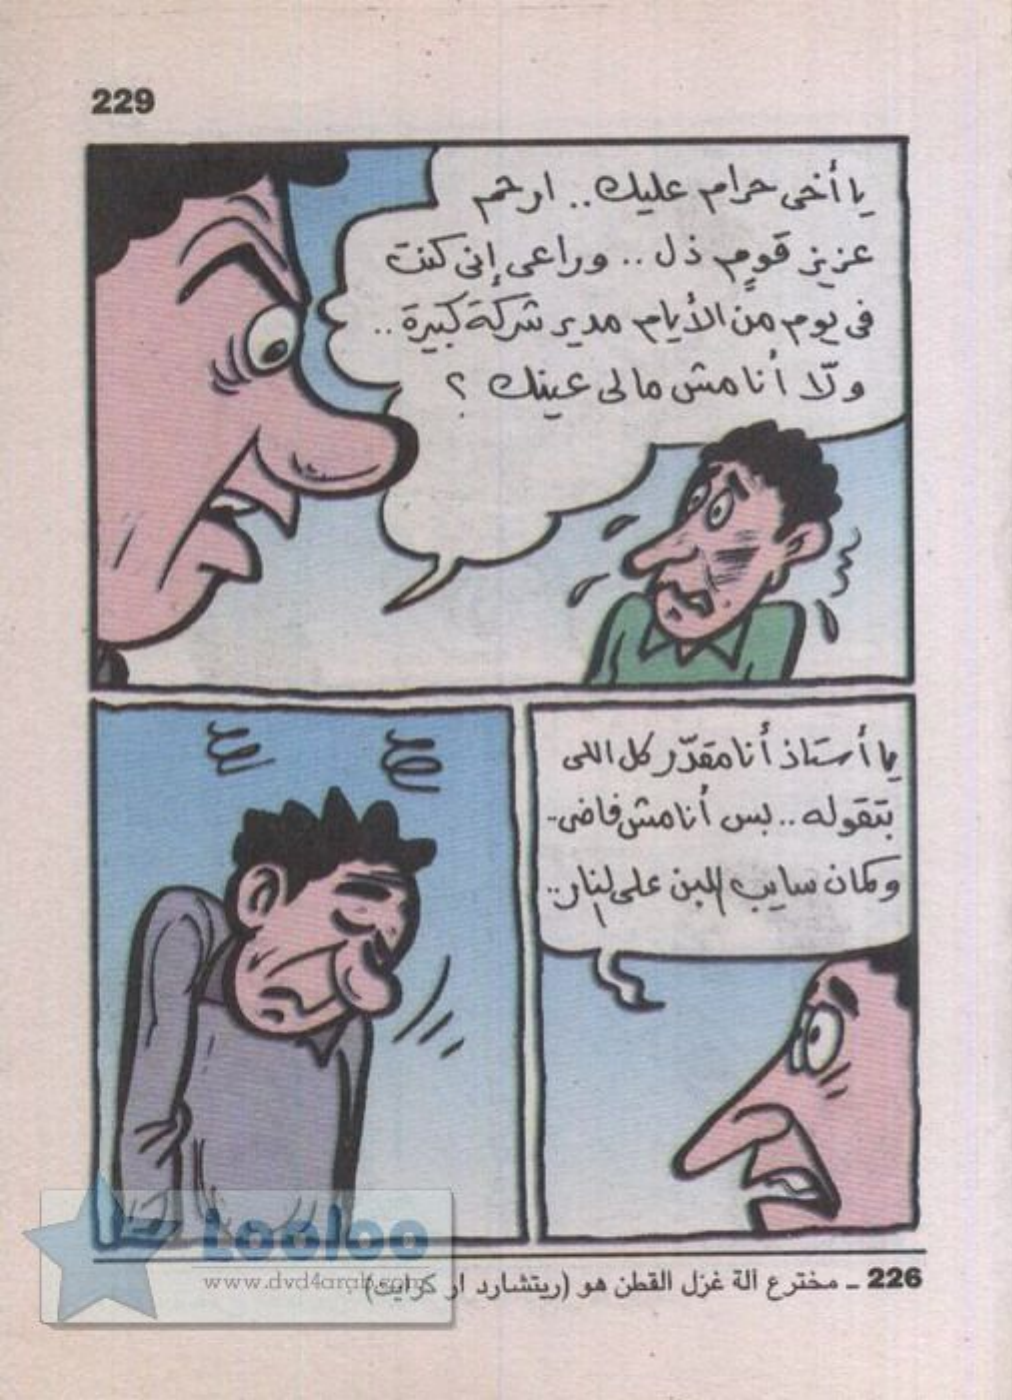 229
يا أخى حرام عليك.. ارحم
عزيز قومٍ ذل .. وراعى إنى كنت
فى يوم من الأيام مدير شركة كبيرة ..
ولّا أنا مش مالى عينك ؟
يا أستاذ أنا مقدّر كل اللى
بتقوله .. بس أنا مش فاضى -
وكمان سايب اللبن على النار ..
226 ـ مخترع آلة غزل القطن هو (ريتشارد ار كرايت)
Looloo
www.dvd4arab.com